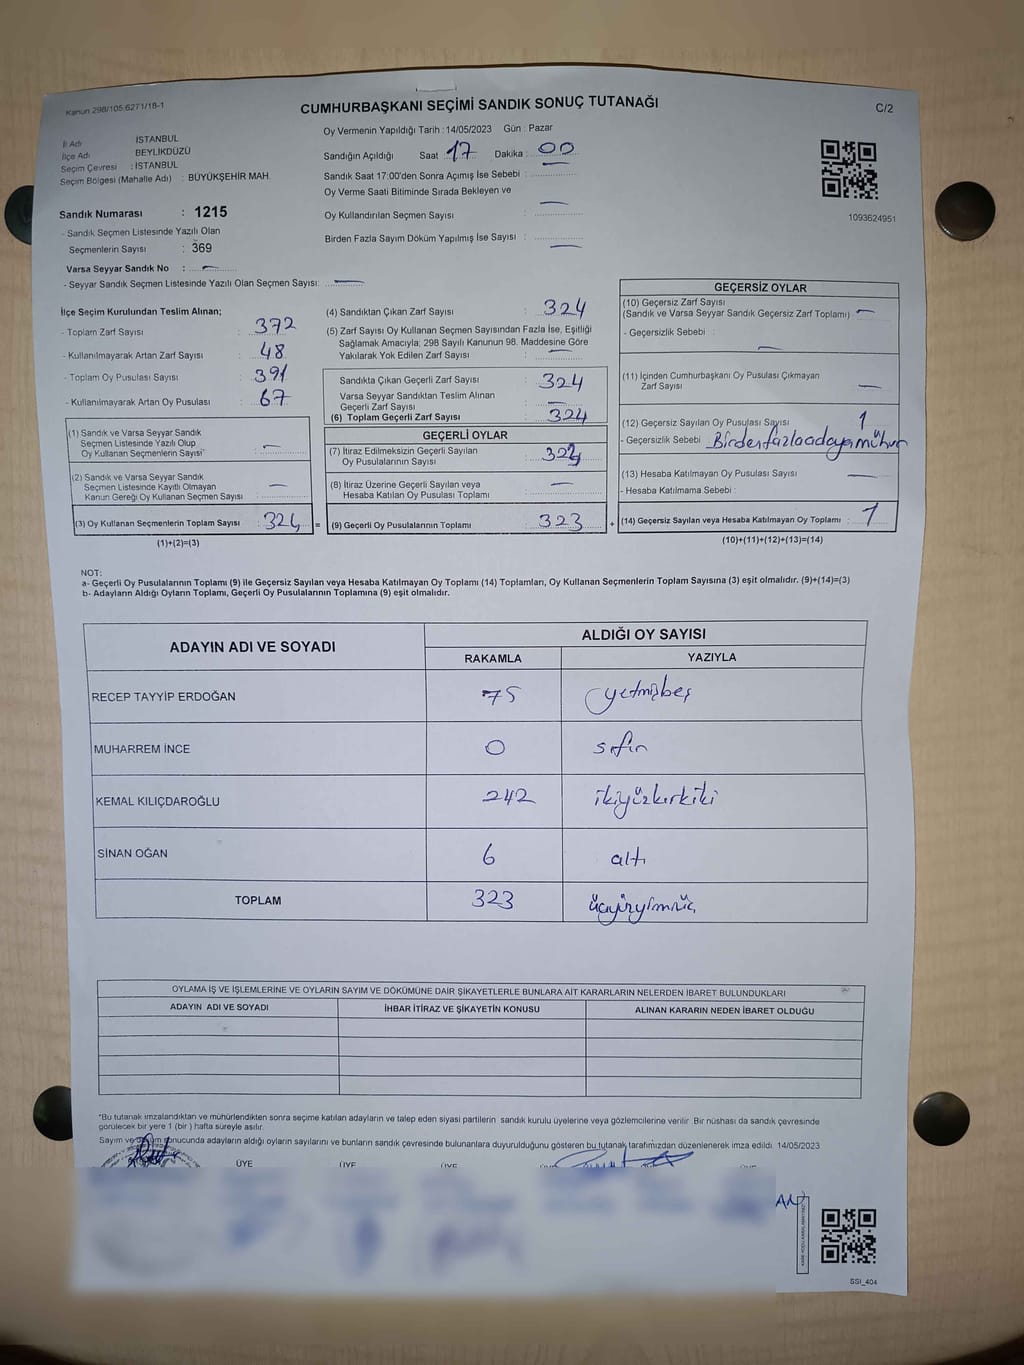 Kanun 298/105 6271/18-1
CUMHURBAŞKANI SEÇİMİ SANDIK SONUÇ TUTANAĞI
C/2
İl Adı : İSTANBUL
İlçe Adı BEYLİKDÜZÜ
Seçim Çevresi : İSTANBUL
Seçim Bölgesi (Mahalle Adı) : BÜYÜKŞEHİR MAH.
Sandık Numarası : 1215
- Sandık Seçmen Listesinde Yazılı Olan
Seçmenlerin Sayısı : 369
Varsa Seyyar Sandık No : —
- Seyyar Sandık Seçmen Listesinde Yazılı Olan Seçmen Sayısı: —
Oy Vermenin Yapıldığı Tarih : 14/05/2023 Gün : Pazar
Sandığın Açıldığı Saat 17 Dakika : 00
Sandık Saat 17:00'den Sonra Açımış İse Sebebi : —
Oy Verme Saati Bitiminde Sırada Bekleyen ve
Oy Kullandırılan Seçmen Sayısı : —
Birden Fazla Sayım Döküm Yapılmış İse Sayısı : —
1093624951
İlçe Seçim Kurulundan Teslim Alınan;
- Toplam Zarf Sayısı : 372
- Kullanılmayarak Artan Zarf Sayısı : 48
- Toplam Oy Pusulası Sayısı : 391
- Kullanılmayarak Artan Oy Pusulası : 67
(1) Sandık ve Varsa Seyyar Sandık
Seçmen Listesinde Yazılı Olup
Oy Kullanan Seçmenlerin Sayısı : —
(2) Sandık ve Varsa Seyyar Sandık
Seçmen Listesinde Kayıtlı Olmayan
Kanun Gereği Oy Kullanan Seçmen Sayısı : —
(3) Oy Kullanan Seçmenlerin Toplam Sayısı : 324 =
(1)+(2)=(3)
(4) Sandıktan Çıkan Zarf Sayısı : 324
(5) Zarf Sayısı Oy Kullanan Seçmen Sayısından Fazla İse, Eşitliği
Sağlamak Amacıyla; 298 Sayılı Kanunun 98. Maddesine Göre
Yakılarak Yok Edilen Zarf Sayısı : —
Sandıkta Çıkan Geçerli Zarf Sayısı : 324
Varsa Seyyar Sandıktan Teslim Alınan
Geçerli Zarf Sayısı : —
(6) Toplam Geçerli Zarf Sayısı : 324
GEÇERLİ OYLAR
(7) İtiraz Edilmeksizin Geçerli Sayılan
Oy Pusulalarının Sayısı : 323
(8) İtiraz Üzerine Geçerli Sayılan veya
Hesaba Katılan Oy Pusulası Toplamı : —
(9) Geçerli Oy Pusulalarının Toplamı : 323 +
GEÇERSİZ OYLAR
(10) Geçersiz Zarf Sayısı
(Sandık ve Varsa Seyyar Sandık Geçersiz Zarf Toplamı) : —
- Geçersizlik Sebebi : —
(11) İçinden Cumhurbaşkanı Oy Pusulası Çıkmayan
Zarf Sayısı : —
(12) Geçersiz Sayılan Oy Pusulası Sayısı : 1
- Geçersizlik Sebebi : Birden fazla adaya mühür
(13) Hesaba Katılmayan Oy Pusulası Sayısı : —
- Hesaba Katılmama Sebebi :
(14) Geçersiz Sayılan veya Hesaba Katılmayan Oy Toplamı : 1
(10)+(11)+(12)+(13)=(14)
NOT:
a- Geçerli Oy Pusulalarının Toplamı (9) ile Geçersiz Sayılan veya Hesaba Katılmayan Oy Toplamı (14) Toplamları, Oy Kullanan Seçmenlerin Toplam Sayısına (3) eşit olmalıdır. (9)+(14)=(3)
b- Adayların Aldığı Oyların Toplamı, Geçerli Oy Pusulalarının Toplamına (9) eşit olmalıdır.
ADAYIN ADI VE SOYADI ALDIĞI OY SAYISI
RAKAMLA YAZIYLA
RECEP TAYYİP ERDOĞAN 75 yetmişbeş
MUHARREM İNCE 0 sıfır
KEMAL KILIÇDAROĞLU 242 ikiyüzkırkiki
SİNAN OĞAN 6 altı
TOPLAM 323 üçyüzyirmiüç
OYLAMA İŞ VE İŞLEMLERİNE VE OYLARIN SAYIM VE DÖKÜMÜNE DAİR ŞİKAYETLERLE BUNLARA AİT KARARLARIN NELERDEN İBARET BULUNDUKLARI
ADAYIN ADI VE SOYADI İHBAR İTİRAZ VE ŞİKAYETİN KONUSU ALINAN KARARIN NEDEN İBARET OLDUĞU
*Bu tutanak imzalandıktan ve mühürlendikten sonra seçime katılan adayların ve talep eden siyasi partilerin sandık kurulu üyelerine veya gözlemcilerine verilir. Bir nüshası da sandık çevresinde
görülecek bir yere 1 (bir ) hafta süreyle asılır.
Sayım ve döküm sonucunda adayların aldığı oyların sayılarını ve bunların sandık çevresinde bulunanlara duyurulduğunu gösteren bu tutanak tarafımızdan düzenlenerek imza edildi. 14/05/2023
ÜYE ÜYE ÜYE
SSI_404